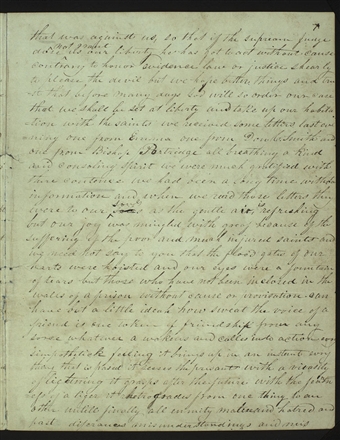 7
that was against us, so that if the supreme judge
does not grant us our liberty he has got to act without cause
contrary to honor evidence law or justice shearly
to please the devil but we hope better things and
that before many days God will so order our case
that we shall be set at liberty and take up our habita
tion with the saints we received some letters last eve
ning one from Emma one from Don C. Smith and
one from Bishop Partridge all breathing a kind
and consoling spirit we were much gratified with
there contence we had been a long time without
information and when we read those letters they
were to our Soals as the gentle air, is refreshing
but our joy was mingled with greaf because of the
suffering of the poor and much injured saints and
we need not say to you that the flood gates of our
harts were hoisted and our eyes were a fountain
of tears but those who have not been inclosed in the
walls of a prison without cause or provication can
have but a little ideah how sweat the voice of a
friend is one token of friendship from any
sorce whatever awakens and calles into action evry
simpathetick feeling it brings up in an instant evry
thing that is pased it sesses the present with a vivacity
of lightning it grasps after the future with the
of a tiger it retrogrades from one thing to an
other untill finally all enmity malice and hatred and
past diferances misunderstandings and mis